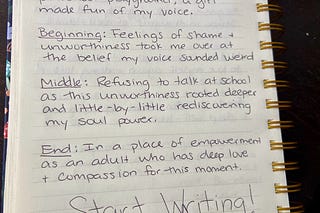 playground, a girl
made fun of my voice.
Beginning: Feelings of shame +
unworthiness took me over at
the belief my voice sounded weird
Middle: Refusing to talk at school
as this unworthiness rooted deeper
and little-by-little rediscovering
my soul power.
End: In a place of empowerment
as an adult who has deep love
+ compassion for this moment.
Start Writing!